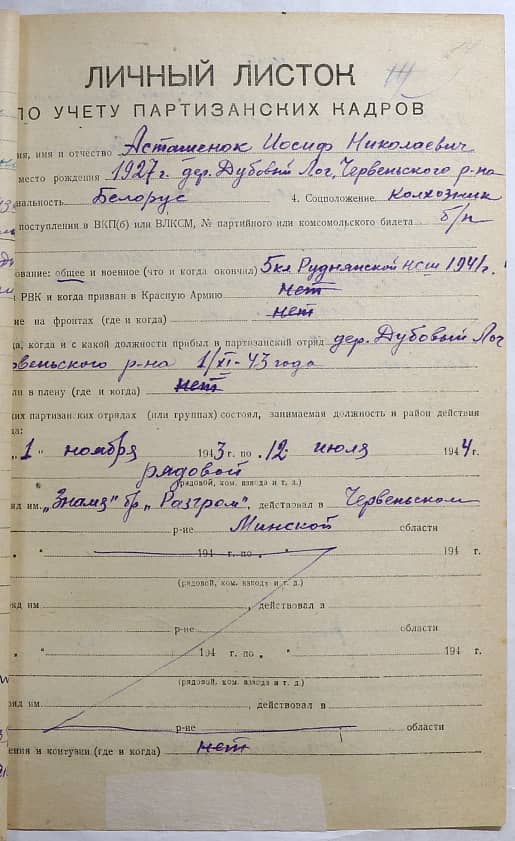 ЛИЧНЫЙ ЛИСТОК
ПО УЧЕТУ ПАРТИЗАНСКИХ КАДРОВ
ия, имя и отчество Асташенок Иосиф Николаевич
место рождения 1927 г. дер. Дубовый Лог, Червеньского р-на
иональность Белорус 4. Соцположение Колхозник
поступления в ВКП(б) или ВЛКСМ, № партийного или комсомольского билета б/п
ование: общее и военное (что и когда окончил) 5 кл. Руднянской НСШ 1941 г.
РВК и когда призван в Красную Армию нет
ие на фронтах (где и когда) нет
да, когда и с какой должности прибыл в партизанский отряд дер. Дубовый Лог
рвеньского р-на 1/XI-43 года
ли в плену (где и когда) нет
ких партизанских отрядах (или группах) состоял, занимаемая должность и район действия
да:
„ 1 “ ноября 1943 г. по „ 12 июля 1944 г.
рядовой
(рядовой, ком. взвода и т. д.)
яд им. „Знамя" бр. „Разгром", действовал в Червеньском
р-не Минской области
„ “ 194 г. по „ “ 194 г.
(рядовой, ком. взвода и т. д.)
яд им , действовал в
р-не области
„ “ 194 г. по „ “ 194 г.
(рядовой, ком. взвода и т. д.)
ряд им. , действовал в
р-не области
ения и контузии (где и когда) нет